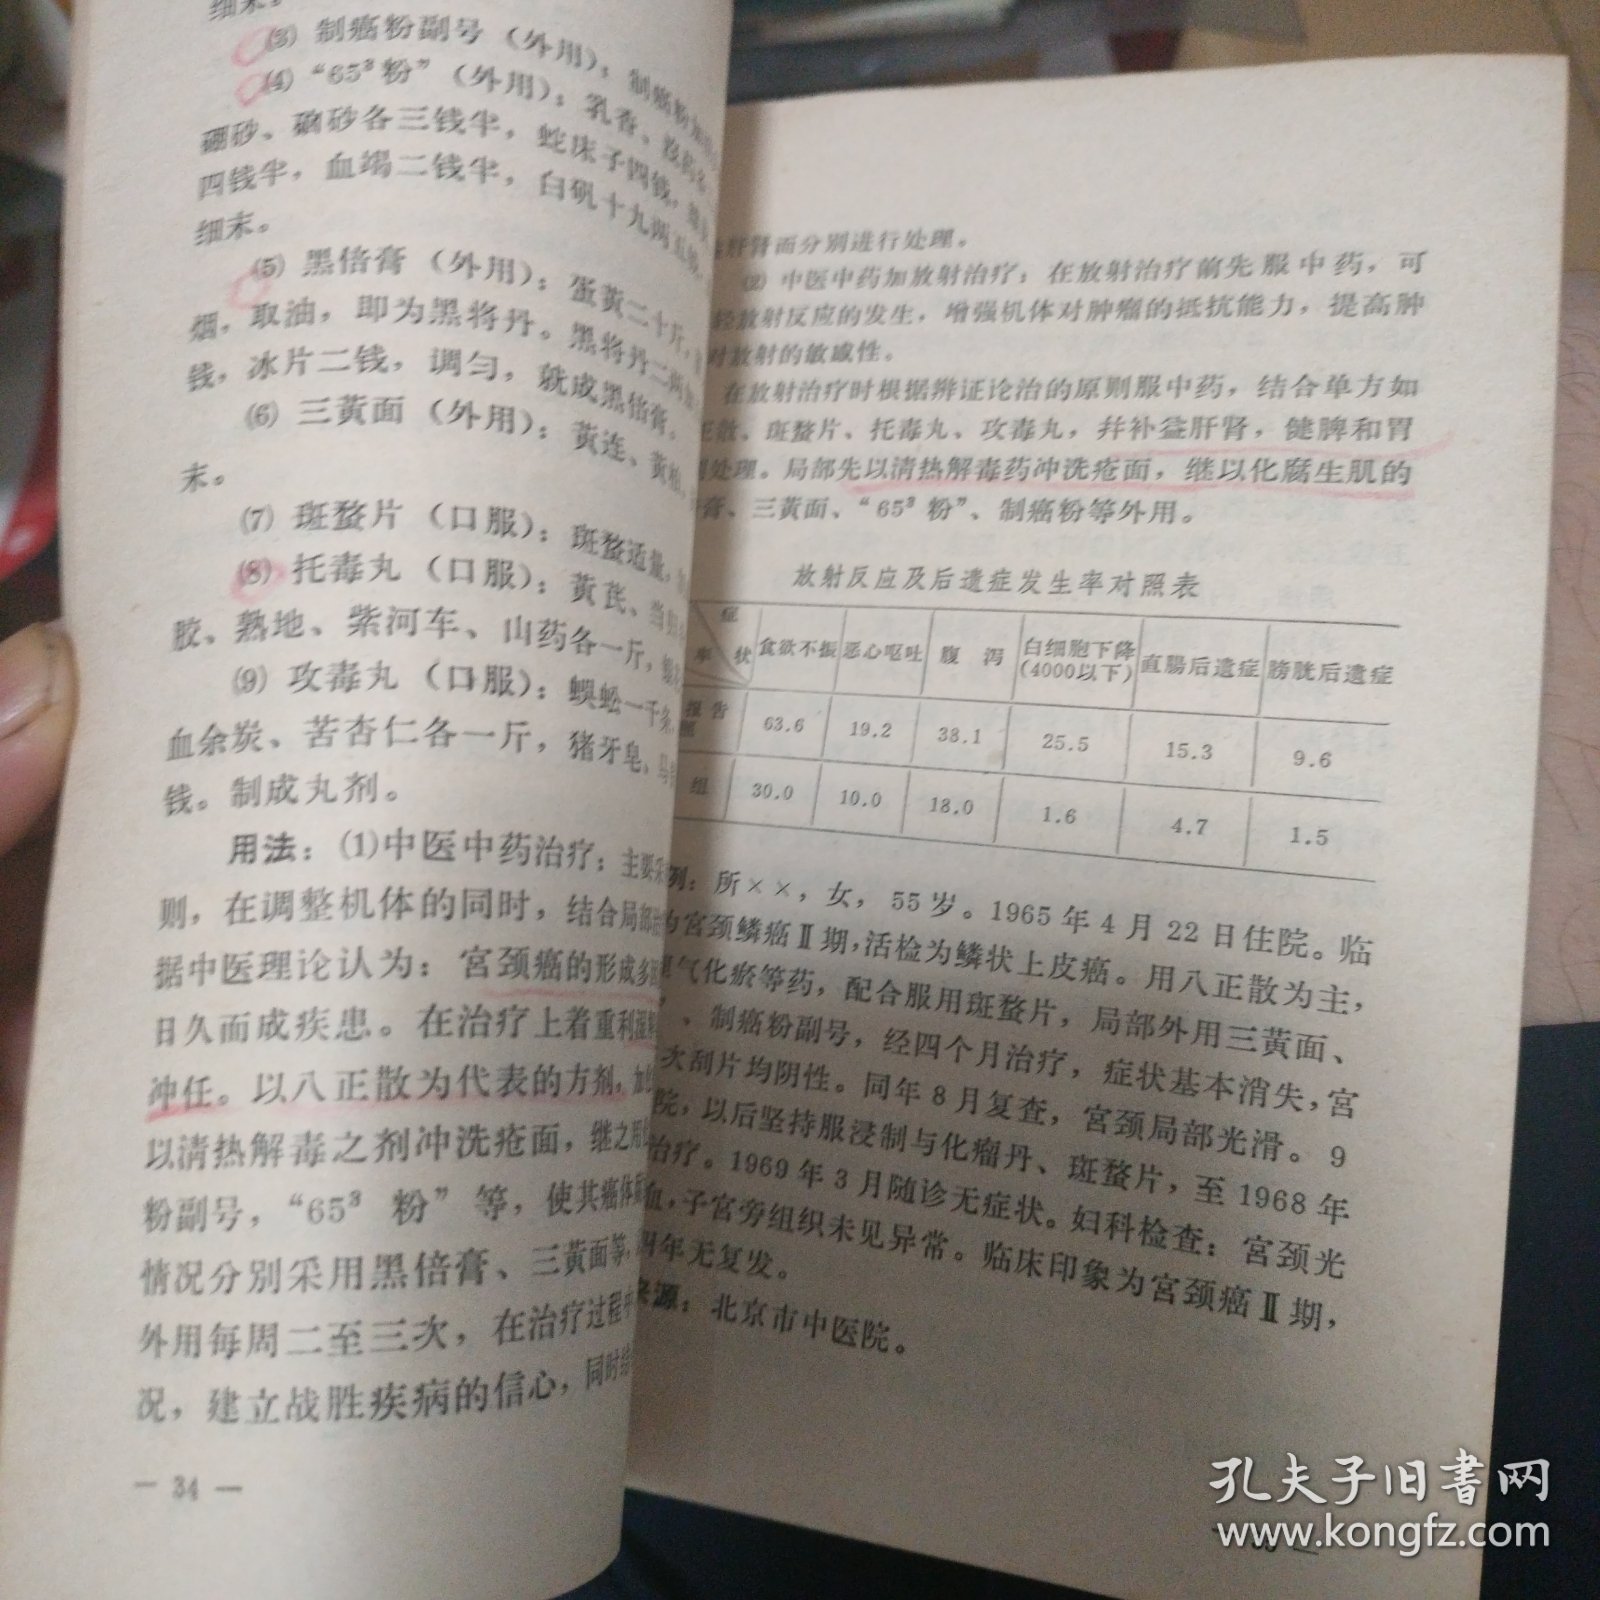 细末。
(3) 制癌粉副号（外用）：制癌粉
(4) “65³粉”（外用）：乳香、没药各
硼砂、硇砂各三钱半，蛇床子四钱，
四钱半，血竭二钱半，白矾十九两五钱，
细末。
(5) 黑倍膏（外用）：蛋黄二十斤，
烟，取油，即为黑将丹。黑将丹二两
钱，冰片二钱，调匀，就成黑倍膏。
(6) 三黄面（外用）：黄连、黄柏
末。
(7) 斑蝥片（口服）：斑蝥适量，
(8) 托毒丸（口服）：黄芪、当归
胶、熟地、紫河车、山药各一斤，
(9) 攻毒丸（口服）：蜈蚣一千条
血余炭、苦杏仁各一斤，猪牙皂、
钱。制成丸剂。
用法：(1)中医中药治疗：主要采
则，在调整机体的同时，结合局部
据中医理论认为：宫颈癌的形成多
日久而成疾患。在治疗上着重利湿
冲任。以八正散为代表的方剂，加
以清热解毒之剂冲洗疮面，继之用
粉副号，“65³ 粉”等，使其癌体
情况分别采用黑倍膏、三黄面等，
外用每周二至三次，在治疗过程中
况，建立战胜疾病的信心，同时给
— 34 —
肝肾而分别进行处理。
(2) 中医中药加放射治疗：在放射治疗前先服中药，可
轻放射反应的发生，增强机体对肿瘤的抵抗能力，提高肿
对放射的敏感性。
在放射治疗时根据辨证论治的原则服中药，结合单方如
正散、斑蝥片、托毒丸、攻毒丸，并补益肝肾，健脾和胃
处理。局部先以清热解毒药冲洗疮面，继以化腐生肌的
膏、三黄面、“65³ 粉”、制癌粉等外用。
放射反应及后遗症发生率对照表
症状 率 食欲不振 恶心呕吐 腹泻 白细胞下降(4000以下) 直腸后遗症 膀胱后遗症
报告 照 63.6 19.2 38.1 25.5 15.3 9.6
组 30.0 10.0 18.0 1.6 4.7 1.5
列：所××，女，55岁。1965年4月22日住院。临
为宫颈鳞癌Ⅱ期，活检为鳞状上皮癌。用八正散为主，
气化瘀等药，配合服用斑蝥片，局部外用三黄面、
、制癌粉副号，经四个月治疗，症状基本消失，宫
次刮片均阴性。同年8月复查，宫颈局部光滑。9
院，以后坚持服浸制与化瘤丹、斑蝥片，至1968年
治疗。1969年3月随诊无症状。妇科检查：宫颈光
血，子宫旁组织未见异常。临床印象为宫颈癌Ⅱ期，
周年无复发。
来源：北京市中医院。
孔夫子旧书网
www.kongfz.com